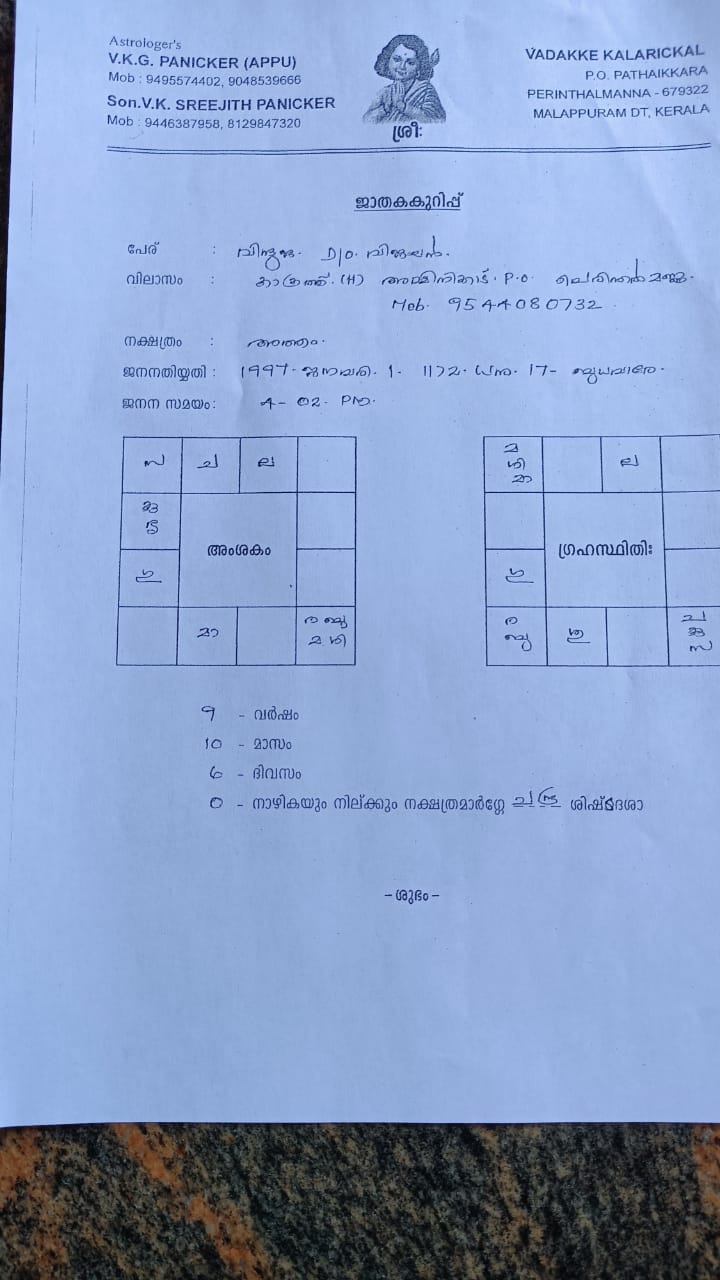 Astrologer's
V.K.G. PANICKER (APPU)
Mob : 9495574402, 9048539666
Son.V.K. SREEJITH PANICKER
Mob : 9446387958, 8129847320
ശ്രീഃ
VADAKKE KALARICKAL
P.O. PATHAIKKARA
PERINTHALMANNA - 679322
MALAPPURAM DT, KERALA
ജാതകകുറിപ്പ്
പേര് : D/O.
വിലാസം : (H) P.O. പെരിന്തൽമണ്ണ.
Mob. 9544080732.
നക്ഷത്രം : അത്തം.
ജനനതിയ്യതി : 1997. ജനുവരി. 1. 1172. ധനു. 17- ബുധനാഴ്ച.
ജനന സമയം: 4- 02. PM.
സ ച ല
അംശകം
മാ
ര ബു
മ ശി
മ
ശി
മാ
ല
ഗ്രഹസ്ഥിതിഃ
ര
ബു
ശു
9 - വർഷം
10 - മാസം
6 - ദിവസം
0 - നാഴികയും നില്ക്കും നക്ഷത്രമാർഗ്ഗേ ചന്ദ്ര ശിഷ്ടദശാ
- ശുഭം -